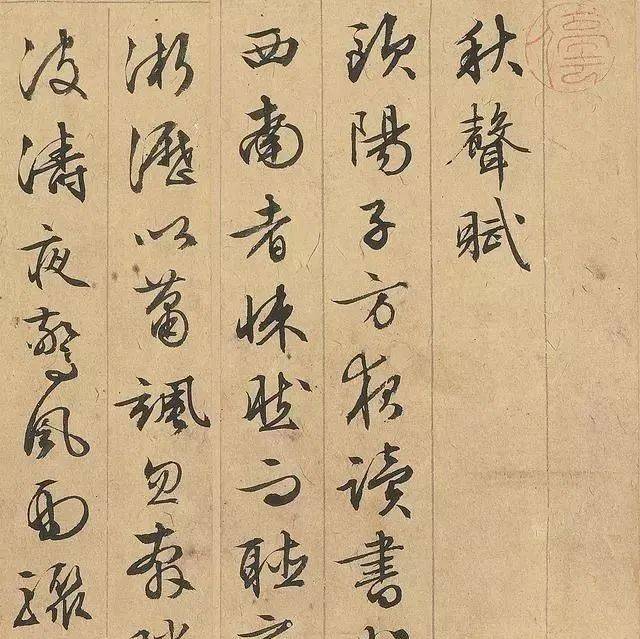 秋聲賦
歐陽子方夜讀書
西南者悚然而聽
淅瀝以蕭颯忽奔
波濤夜驚風雨驟